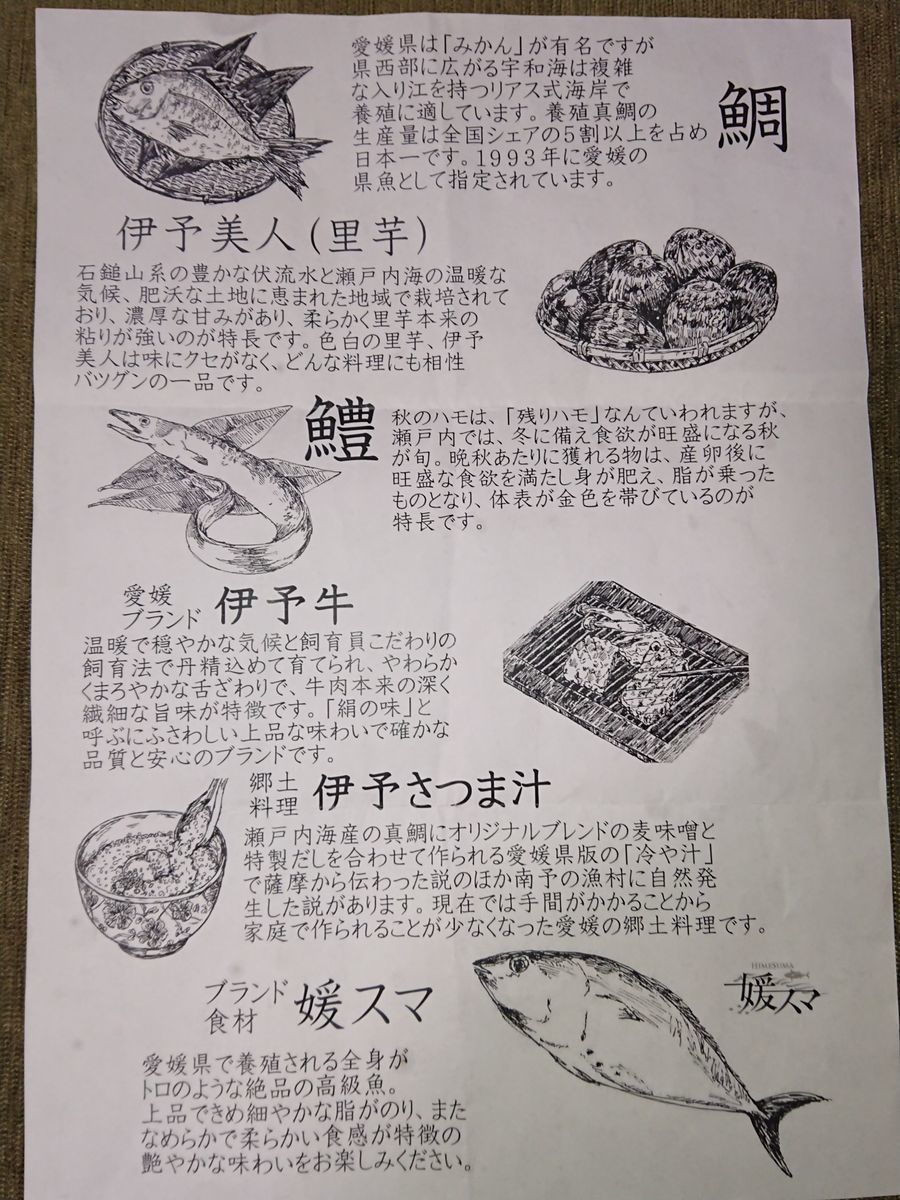 愛媛県は「みかん」が有名ですが
県西部に広がる宇和海は複雑
な入り江を持つリアス式海岸で
養殖に適しています。養殖真鯛の
生産量は全国シェアの5割以上を占め
日本一です。1993年に愛媛の
県魚として指定されています。
鯛
伊予美人(里芋)
石鎚山系の豊かな伏流水と瀬戸内海の温暖な
気候、肥沃な土地に恵まれた地域で栽培されて
おり、濃厚な甘みがあり、柔らかく里芋本来の
粘りが強いのが特長です。色白の里芋、伊予
美人は味にクセがなく、どんな料理にも相性
バツグンの一品です。
鱧
秋のハモは、「残りハモ」なんていわれますが、
瀬戸内では、冬に備え食欲が旺盛になる秋
が旬。晩秋あたりに獲れる物は、産卵後に
旺盛な食欲を満たし身が肥え、脂が乗った
ものとなり、体表が金色を帯びているのが
特長です。
愛媛
ブランド
伊予牛
温暖で穏やかな気候と飼育員こだわりの
飼育法で丹精込めて育てられ、やわらか
くまろやかな舌ざわりで、牛肉本来の深く
繊細な旨味が特徴です。「絹の味」と
呼ぶにふさわしい上品な味わいで確かな
品質と安心のブランドです。
郷土
料理
伊予さつま汁
瀬戸内海産の真鯛にオリジナルブレンドの麦味噌と
特製だしを合わせて作られる愛媛県版の「冷や汁」
で薩摩から伝わった説のほか南予の漁村に自然発
生した説があります。現在では手間がかかることから
家庭で作られることが少なくなった愛媛の郷土料理です。
ブランド
食材
媛スマ
HIMESUMA
媛スマ
愛媛県で養殖される全身が
トロのような絶品の高級魚。
上品できめ細やかな脂がのり、また
なめらかで柔らかい食感が特徴の
艶やかな味わいをお楽しみください。